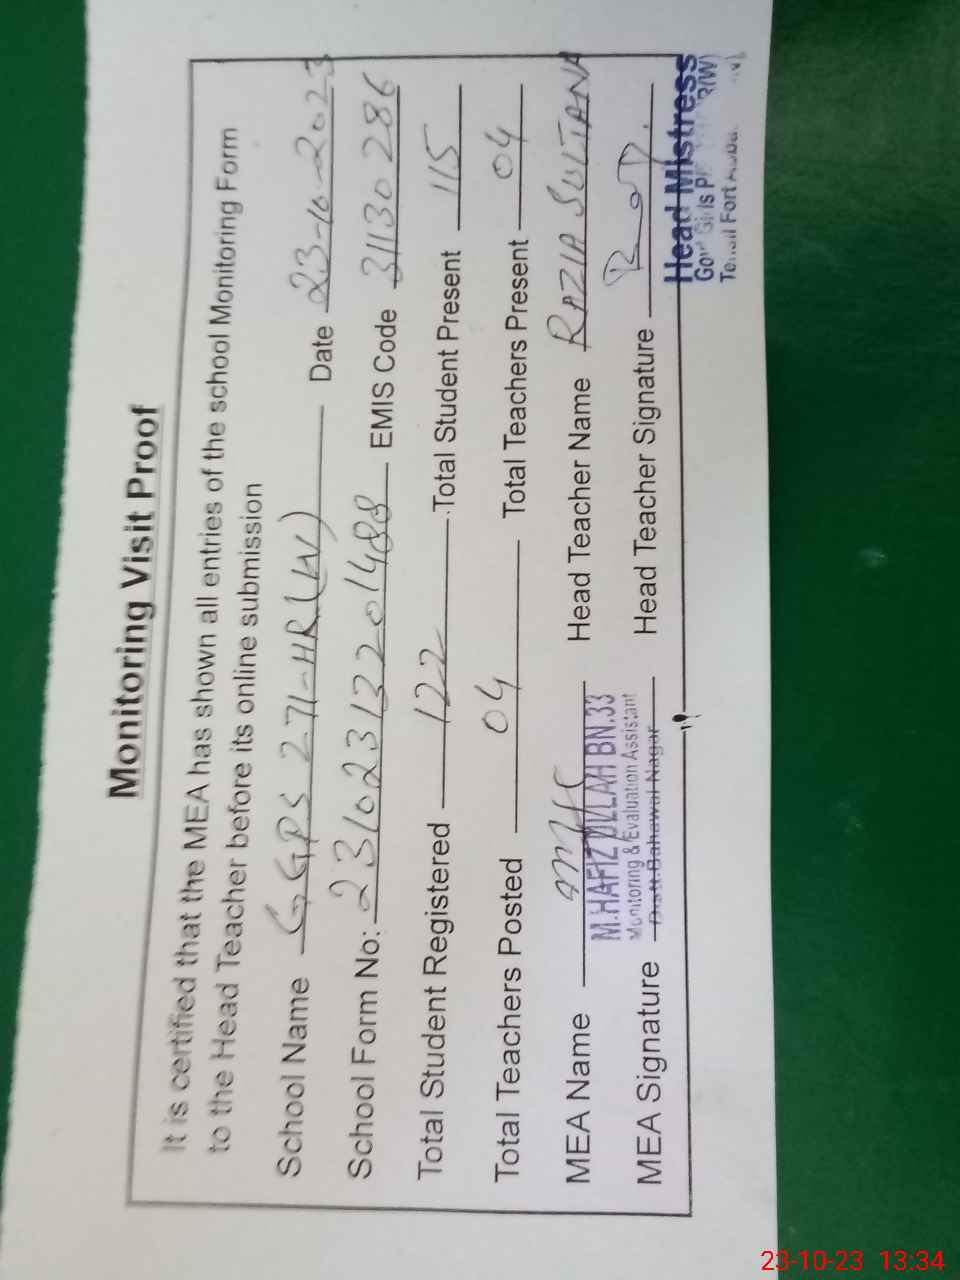 Monitoring Visit Proof
It is certified that the MEA has shown all entries of the school Monitoring Form
to the Head Teacher before its online submission
School Name GGPS 271-HR(W) Date 23-10-2023
School Form No: 231023132201488 EMIS Code 31130286
Total Student Registered 122 Total Student Present 115
Total Teachers Posted 04 Total Teachers Present 04
MEA Name Head Teacher Name RAZIA SULTANA
M.HAFIZ ULLAH BN.33
Monitoring & Evaluation Assistant
MEA Signature Distt. Bahawal Nagar Head Teacher Signature
Head Mistress
Girls
Fort
23-10-23 13:34